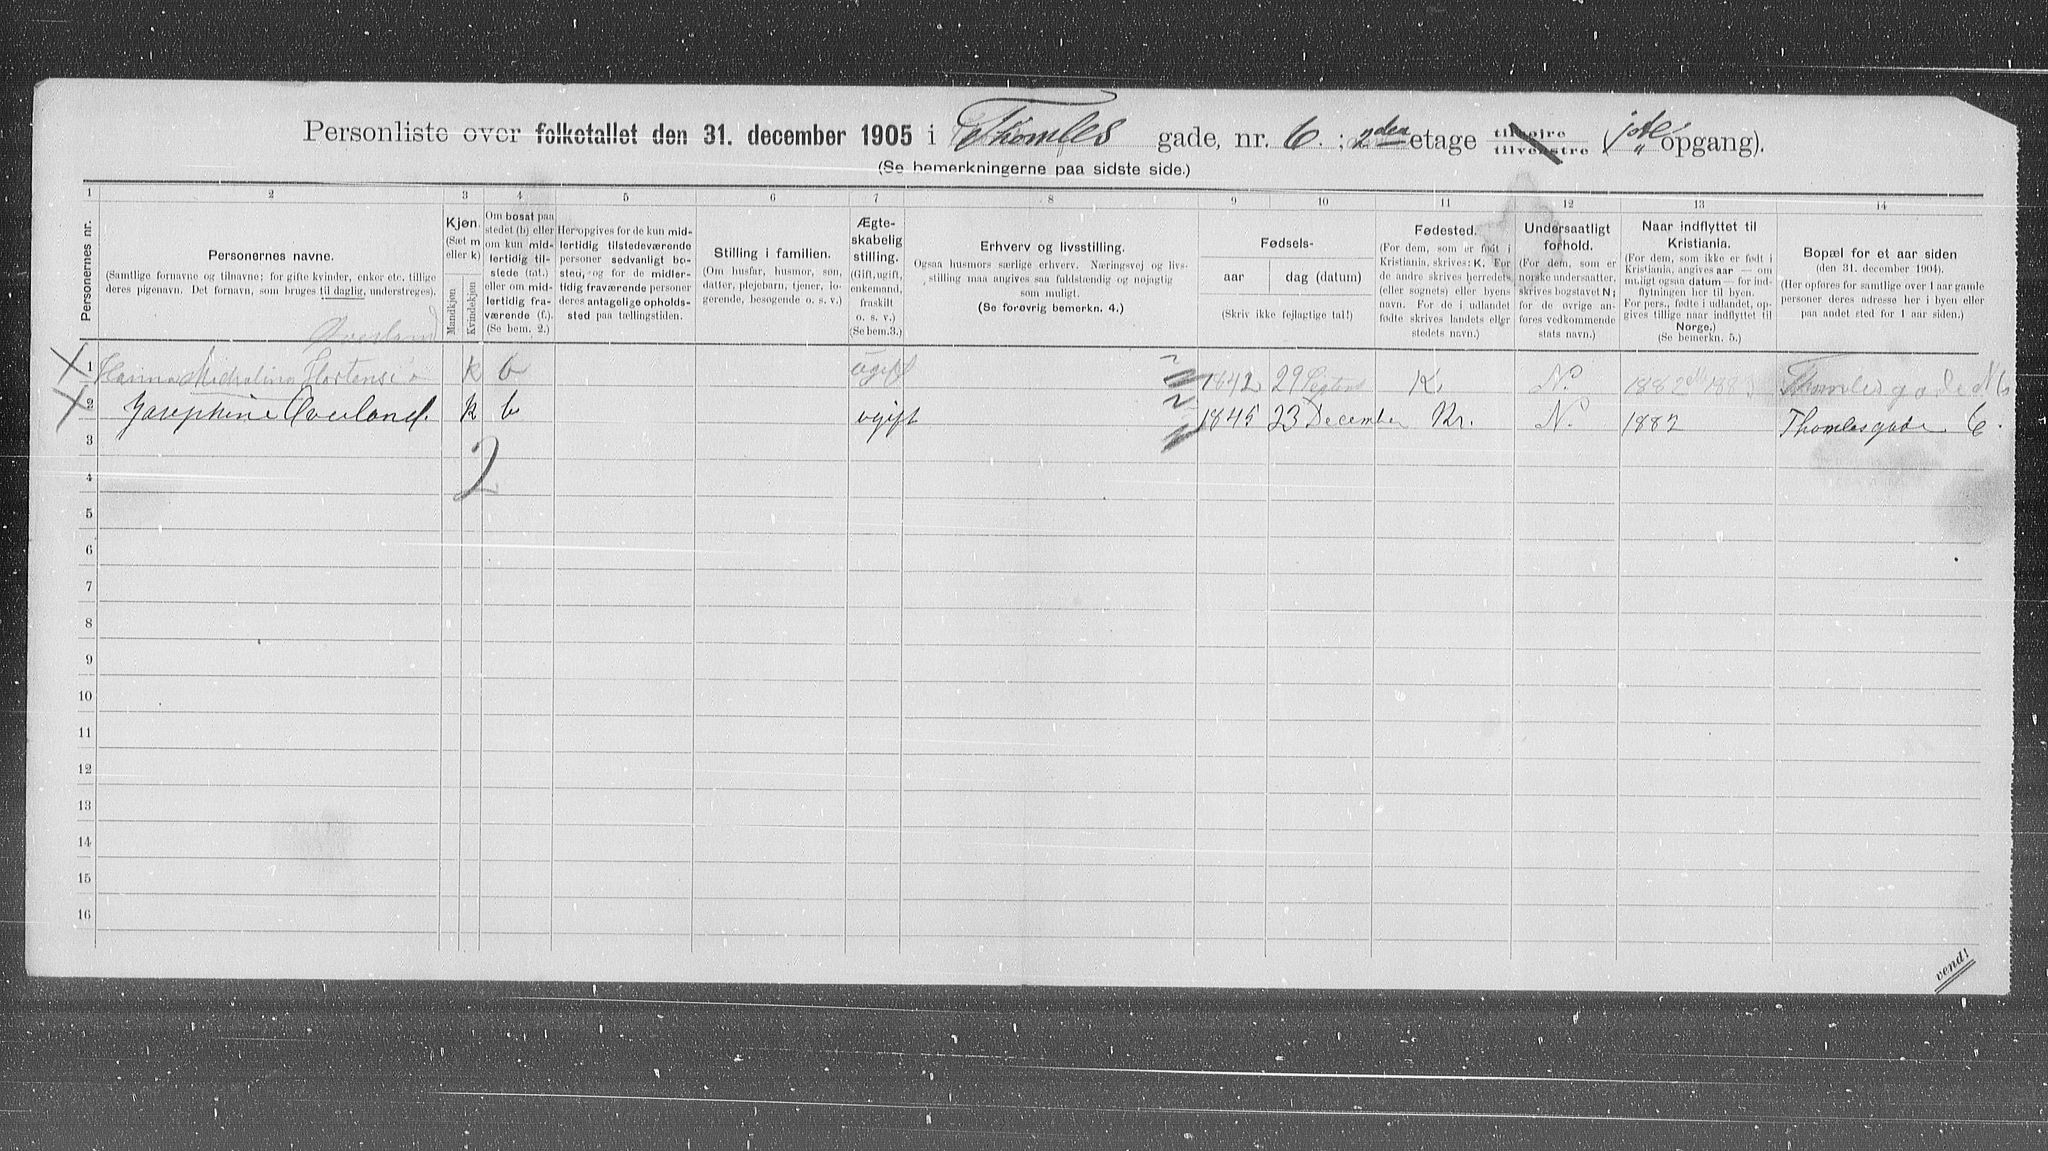 Personliste over folketallet den 31. december 1905 i Thomles gade, nr. 6. ; 2den etage tilhøire tilvenstre opgang).
(Se bemerkningerne paa sidste side.)
1 2 3 4 5 6 7 8 9 10 11 12 13 14
Personernes nr.
Personernes navne.
(Samtlige fornavne og tilnavne; for gifte kvinder, enker etc. tillige
deres pigenavn. Det fornavn, som bruges til daglig, understreges).
Kjøn.
(Sæt m
eller k)
Mandkjøn
Kvindekjøn
Om bosat paa
stedet (b) eller
om kun mid-
lertidig til-
stede (mt.)
eller om mid-
lertidig fra-
værende (f.).
(Se bem. 2.)
Her opgives for de kun mid-
lertidig tilstedeværende
personer sedvanligt bo-
sted, og for de midler-
tidig fraværende personer
deres antagelige opholds-
sted paa tællingstiden.
Stilling i familien.
(Om husfar, husmor, søn,
datter, plejebarn, tjener, lo-
gerende, besøgende o. s. v.)
Ægte-
skabelig
stilling.
(Gift, ugift,
enkemand,
fraskilt
o. s. v.)
(Se bem.3.)
Erhverv og livsstilling.
Ogsaa husmors særlige erhverv. Næringsvej og livs-
stilling maa angives saa fuldstændig og nøjagtig
som muligt.
(Se forøvrig bemerkn. 4.)
Fødsels-
aar
dag (datum)
(Skriv ikke fejlagtige tal!)
Fødested.
(For dem, som er født i
Kristiania, skrives: K. For
de andre skrives herredets
(eller sognets) eller byens
navn. For de i udlandet
fødte skrives landets eller
stedets navn.)
Undersaatligt
forhold.
(For dem, som er
norske undersaatter,
skrives bogstavet N;
for de øvrige an-
føres vedkommende
stats navn.)
Naar indflyttet til
Kristiania.
(For dem, som ikke er født i
Kristiania, angives aar — om
muligt ogsaa datum — for ind-
flytningen her til byen.
For pers., fødte i udlandet, op-
gives tillige naar indflyttet til
Norge.)
(Se bemerkn. 5.)
Bopæl for et aar siden
(den 31. december 1904).
(Her opføres for samtlige over 1 aar gamle
personer deres adresse her i byen eller
paa andet sted for 1 aar siden.)
Overland
1 Hanna Michaline Hortensia k b ugift 1842 29 K. N. 1882 Thomlesgade No 6
2 Josephine Overland. k b ugift 1845 23 December Kr. N. 1882 Thomlesgade 6.
2
3
4
5
6
7
8
9
10
11
12
13
14
15
16
vend!